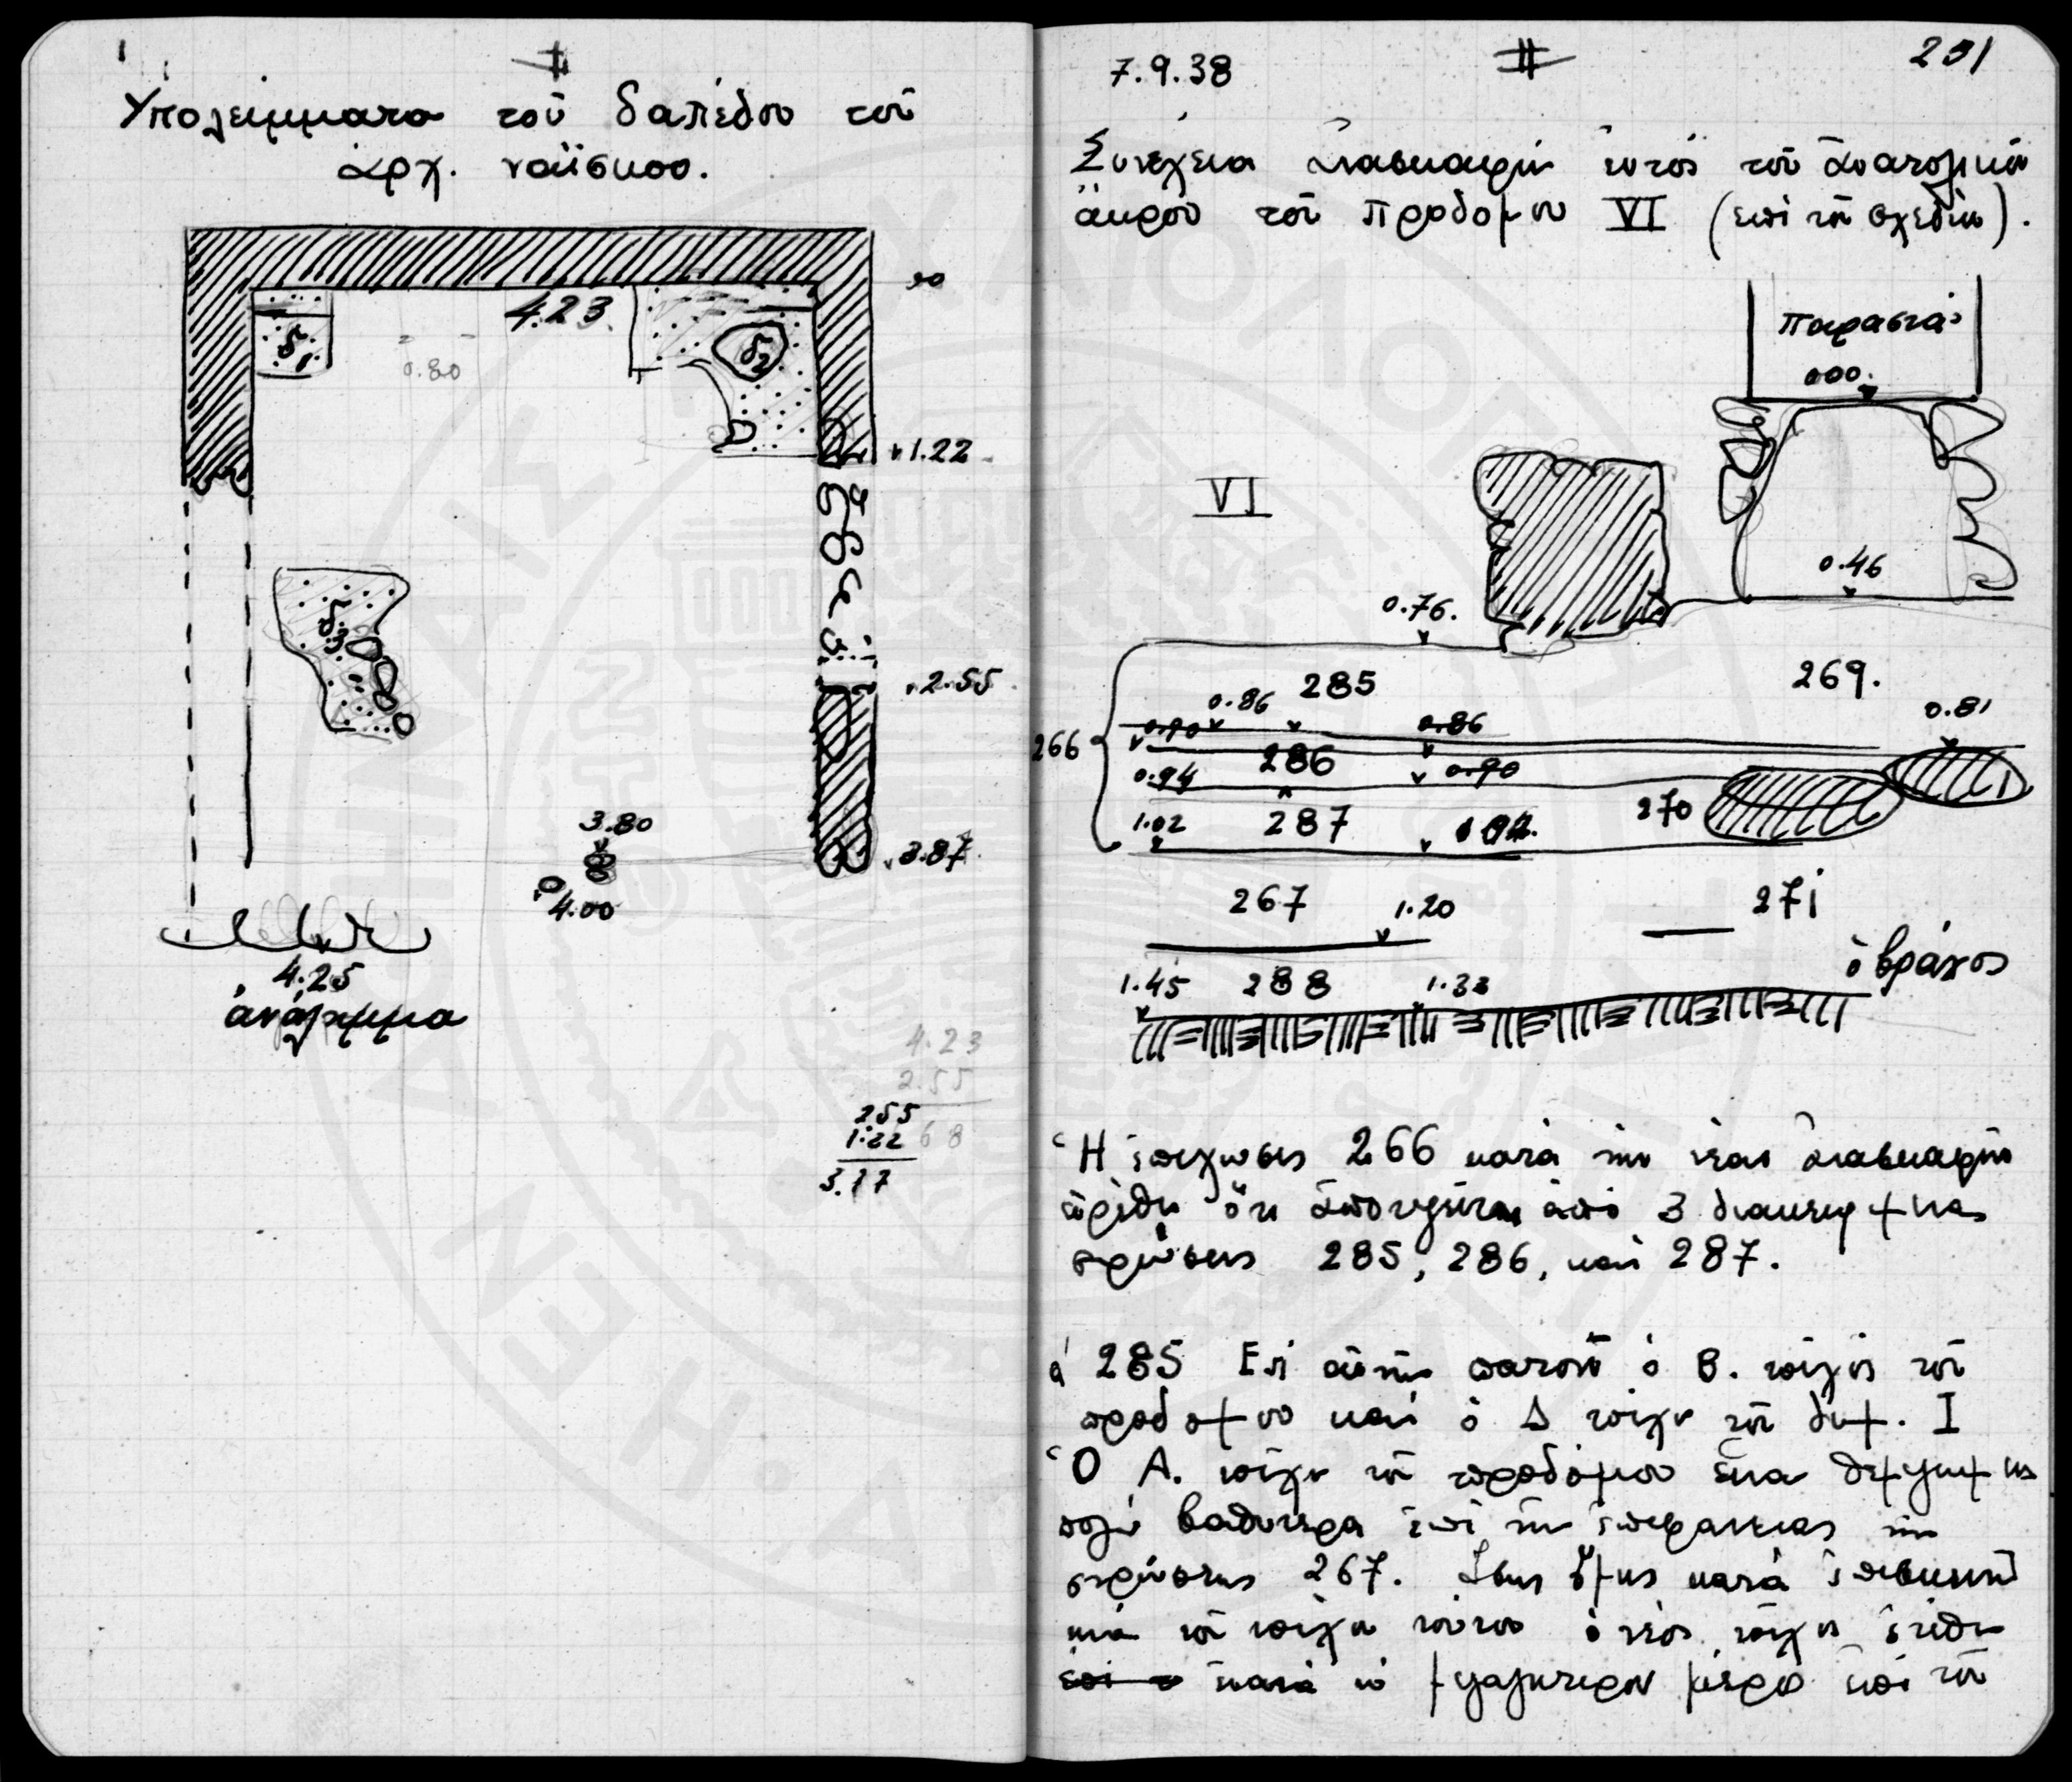 Ὑπολείμματα τοῦ δαπέδου τοῦ
ἀρχ. ναΐσκου.
4.23
δ1
0.80
δ2
1.22
δ3
2.55
3.80
3.87
4.00
4.25
ἀνάλημμα
4.23
2.55
68
2.55
1.22
3.77
7.9.38
231
Συνέχεια ἀνασκαφῆς ἐντός τοῦ ἀνατολικοῦ
ἄκρου τοῦ προδόμου VI (ἐπί τοῦ σχεδίου).
παραστάς
000.
VI
0.46
0.76.
285
269.
0.86
0.86
0.81
0.90
266
286
0.94
0.90
270
1.02
287
267
1.20
271
ὁ βράχος
1.45
288
1.33
Ἡ ἐπίχωσις 266 κατά τήν νέαν ἀνασκαφήν
εὑρέθη ὅτι ἀποτελεῖται ἀπό 3 διακεκριμένας
στρώσεις 285, 286, καί 287.
α' 285 Ἐπί αὐτῆς πατοῦν ὁ Β. τοῖχος τοῦ
προδόμου καί ὁ Δ τοῖχος τοῦ δωμ. I
Ὁ Α. τοῖχος τοῦ προδόμου εἶναι θεμελιωμένος
πολύ βαθύτερα ἐπί τῆς ἐπιφανείας τῆς
στρώσεως 267. Ἴσως ὅμως κατά ἐπισκευήν
τοῦ τοίχου τούτου ὁ νέος τοῖχος ἐτέθη
κατά τό μεγαλύτερον μέρος ἐπί τοῦ